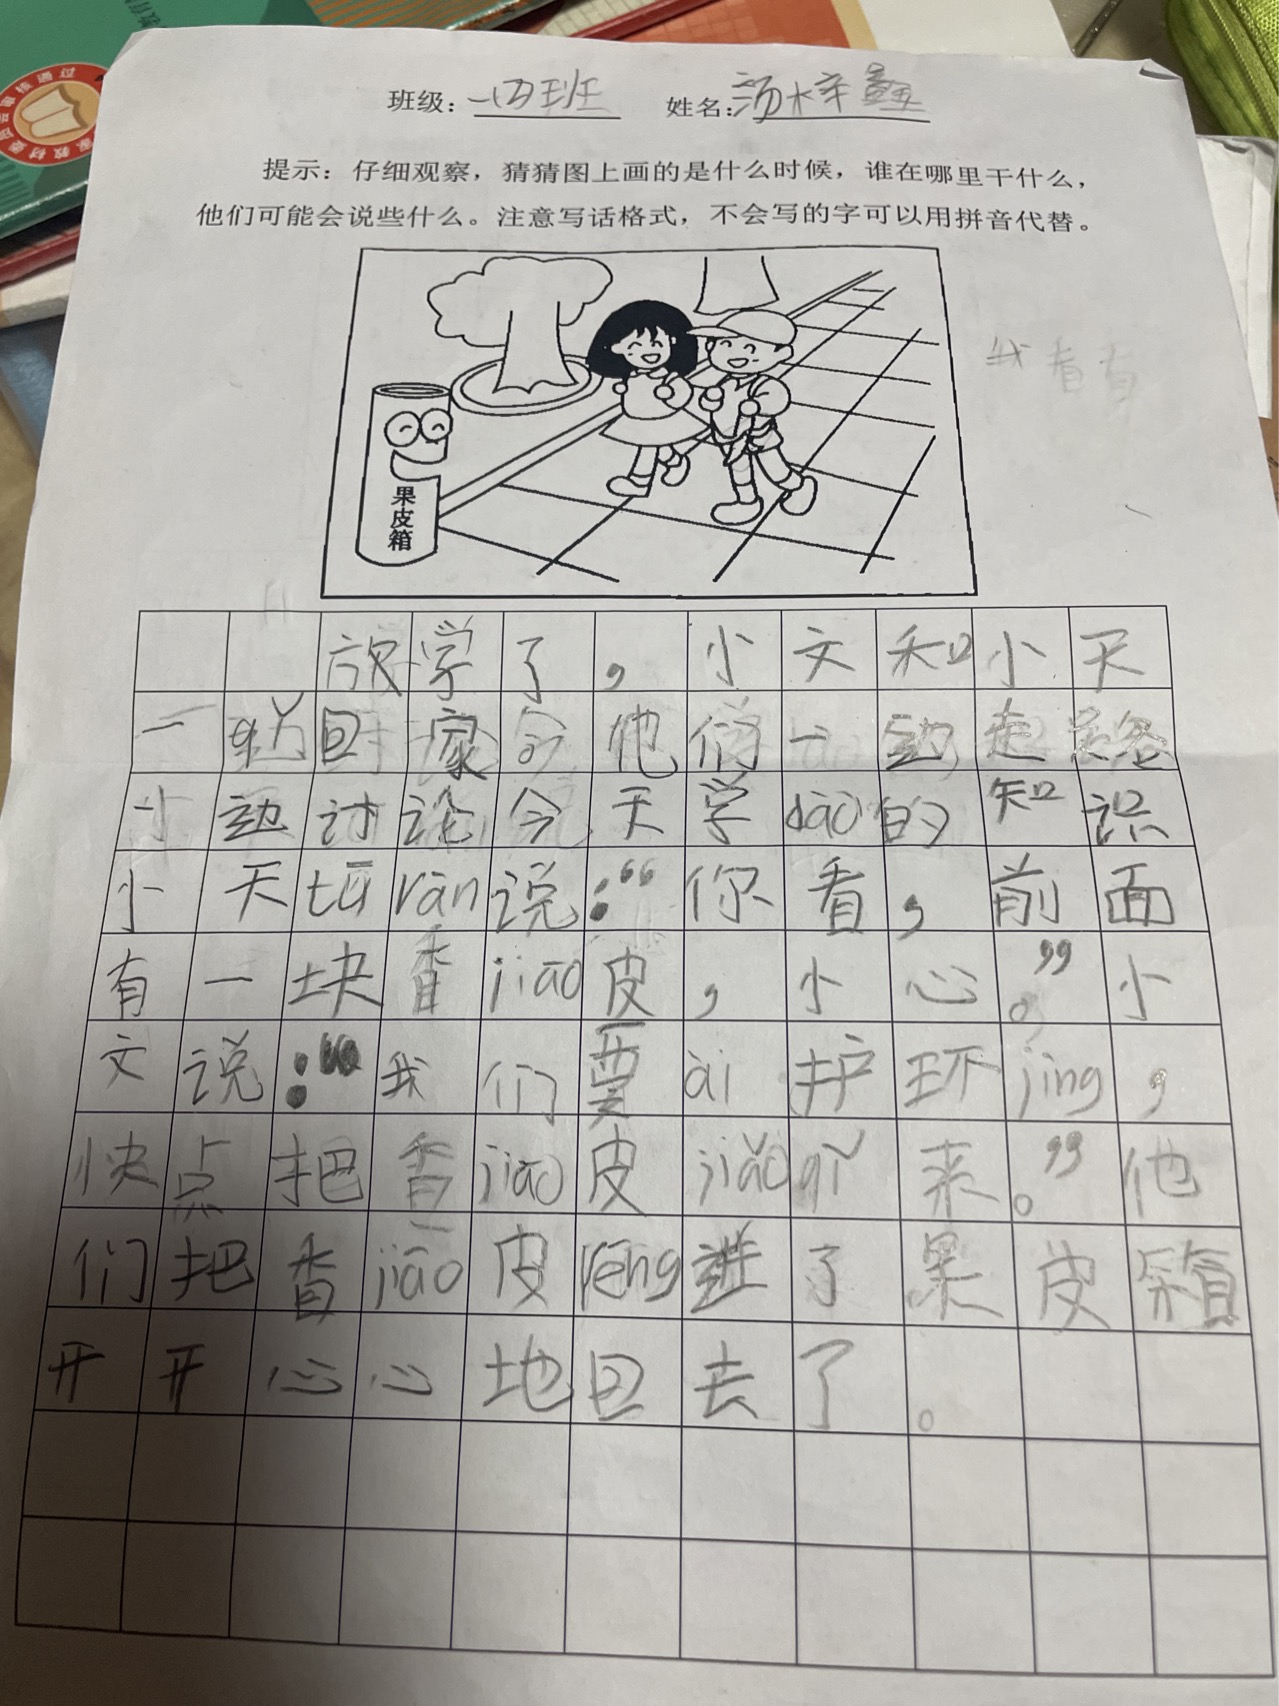 班级：一四班 姓名：汤梓鑫
提示：仔细观察，猜猜图上画的是什么时候，谁在哪里干什么，
他们可能会说些什么。注意写话格式，不会写的字可以用拼音代替。
我看有
果皮箱
放学了，小文和小天
一起回家令他们一边走路
一边讨论今天学dào的知识
小天tū rán说：“你看，前面
有一块香jiāo皮，小心。”小
文说：“我们要ài护环jìng，
快点把香jiāo皮jiǎn qǐ来。”他
们把香jiāo皮rēng进了果皮箱
开开心心地回去了。